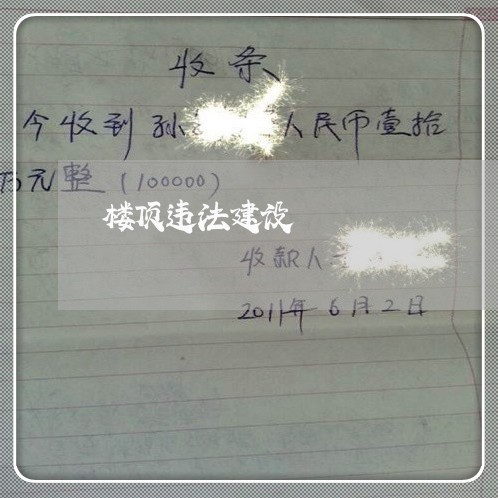 收条
今收到孙 人民币壹拾
万元整(100000)
楼顶违法建设
收款人
2011年6月2日